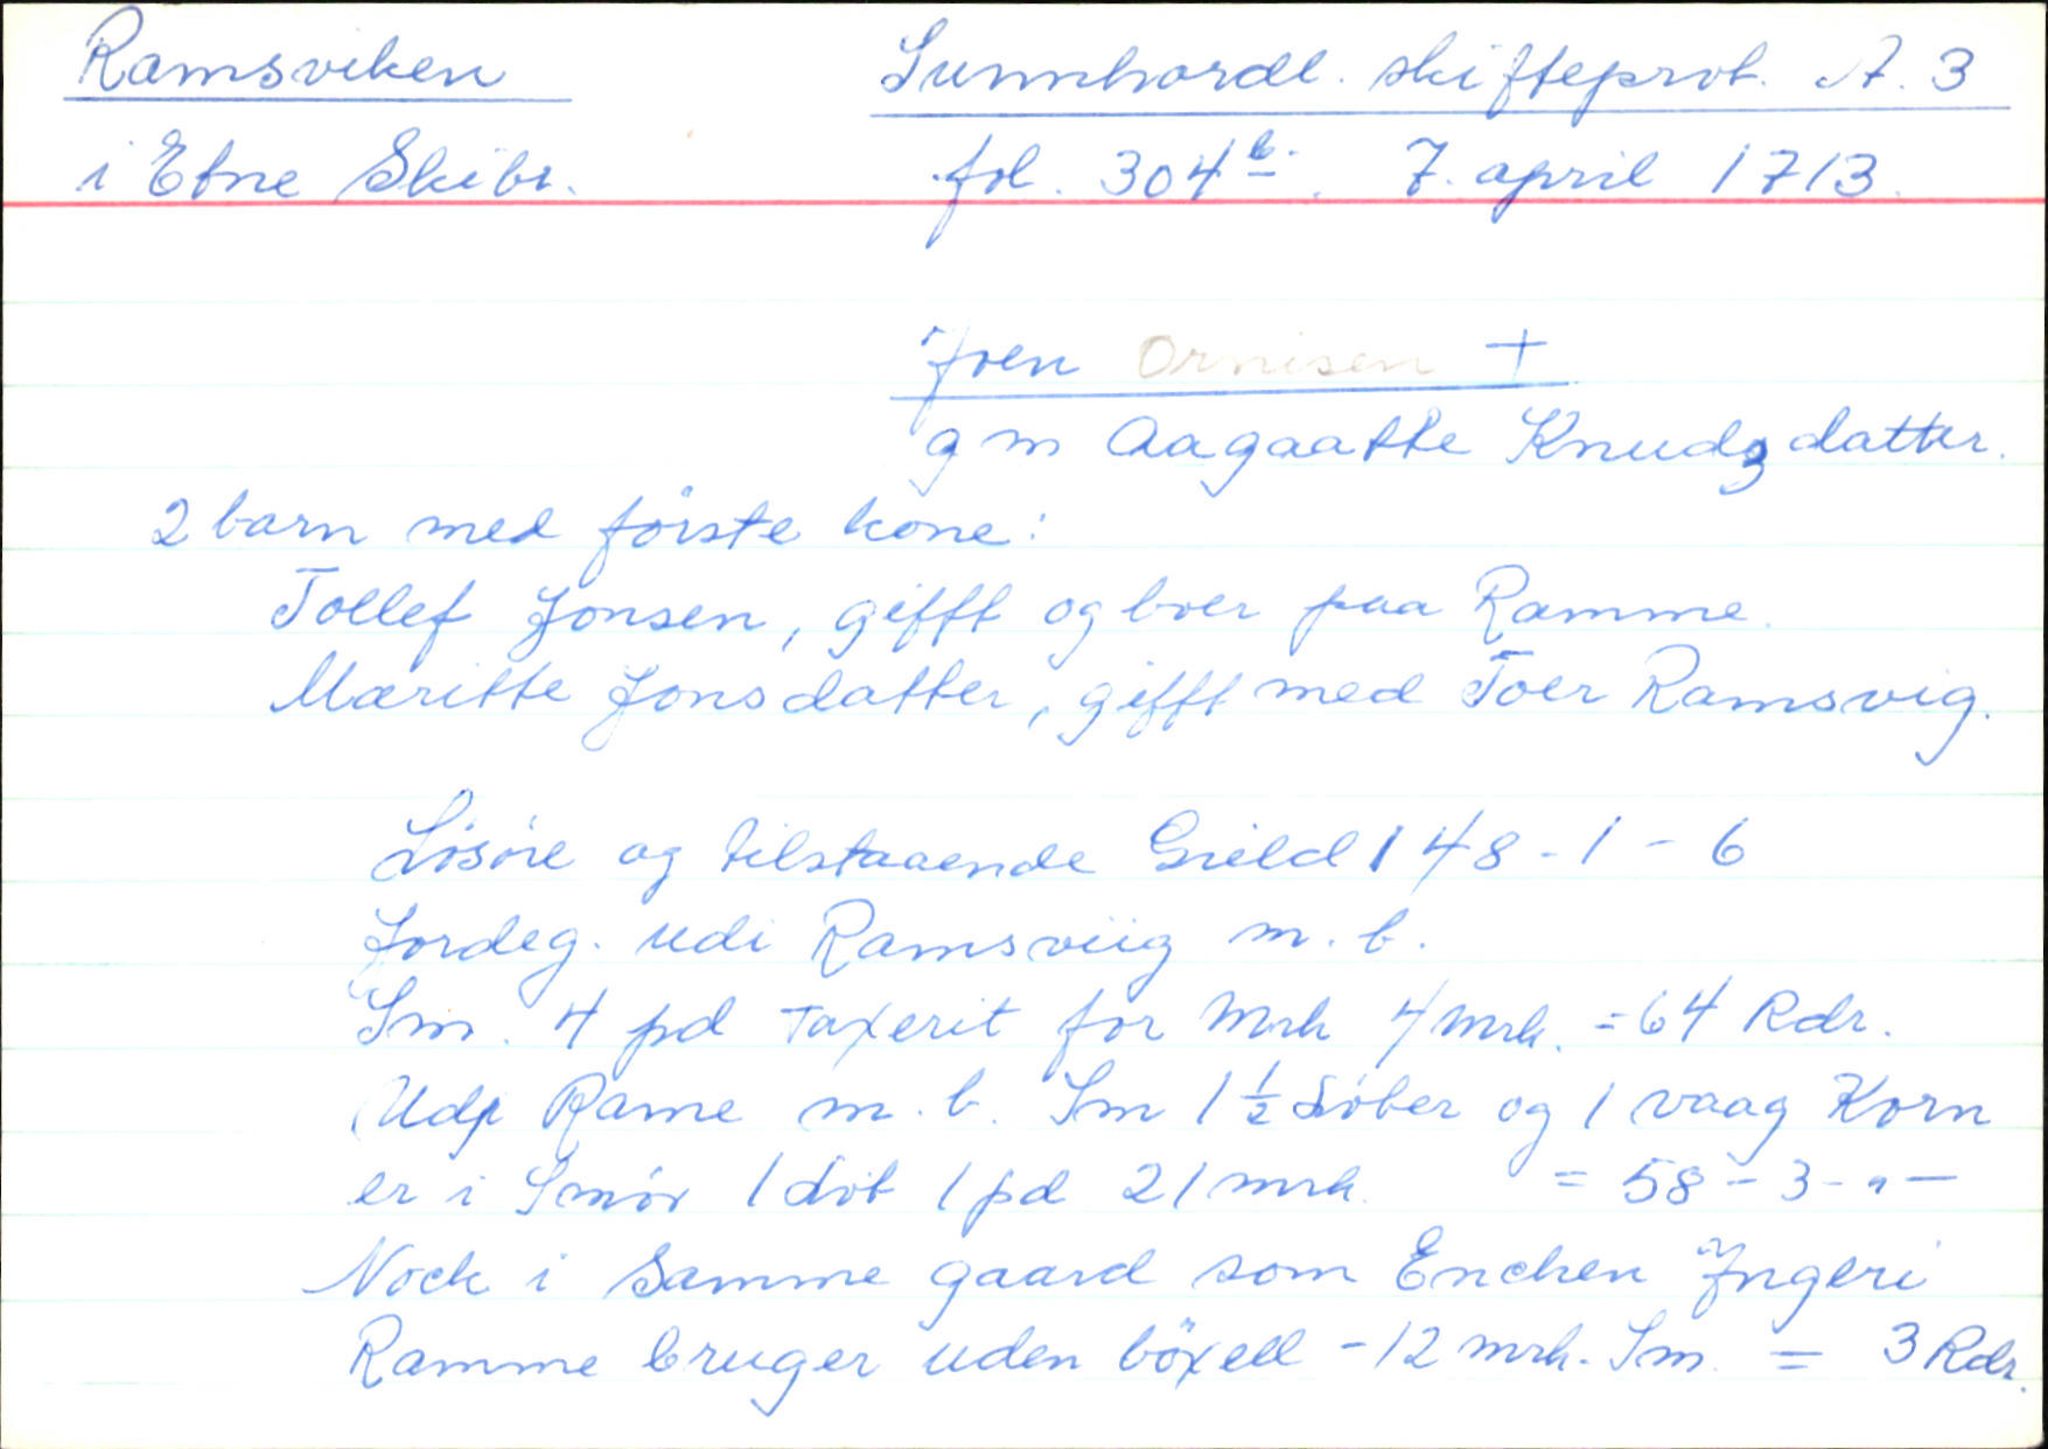 Ramsviken Sunnhordl. skifteprot. A. 3
i Etne Skibr. fol. 304b. 7. april 1713.
Joen Ornisen +
g m Aagaatte Knudz datter.
2 barn med förste kone:
Tollef Jonsen, gifft og boer paa Ramme.
Maritte Jonsdatter, gifft med Toer Ramsvig.
Lösöre og tilstaaende Gield 148-1-6
Jordeg. udi Ramsviig m. b.
Sm. 4 pd Taxerit for Mrk 4 mrk. = 64 Rdr.
Udj Rame m. b. Sm 1 1/2 Löber og 1 vaag Korn
er i Smör 1 Löb 1 pd 21 mrk. = 58-3-"-
Nock i Samme gaard som Enchen Jngeri
Ramme bruger uden böxell - 12 mrk. Sm. = 3 Rdr.